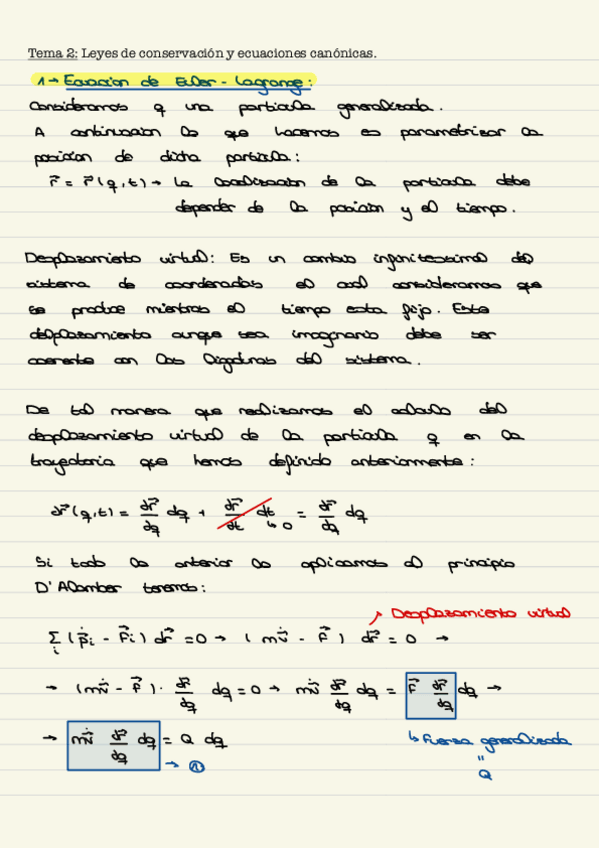 Tema 2: Leyes de conservación y ecuaciones canónicas.
1→ Ecuacion de Euler - Lagrange:
Consideramos q una particula generalizada.
A continuacion lo que hacemos es parametrizar la
posicion de dicha particula:
r⃗ = r⃗ (q,t) → La localizacion de la particula debe
depender de la posicion y el tiempo.
Desplazamiento virtual: Es un cambio infinitessimal del
sistema de coordenadas el cual consideramos que
se produce mientras el tiempo esta fijo. Este
desplazamiento aunque sea imaginario debe ser
coerente con las ligaduras del sistema.
De tal manera que realizamos el calculo del
desplazamiento virtual de la particula q en la
trayectoria que hemos definido anteriormente:
dr⃗ (q,t) = dr⃗/dq dq + dr⃗/dt dt = dr⃗/dq dq
↳ 0
Si todo lo anterior lo aplicamos al principio
D'Alamber tenemos:
↗ Desplazamiento virtual
Σi (ṗ⃗i - F⃗i) dr⃗ = 0 → ( mv̇ - F⃗ ) dr⃗ = 0 →
→ (mv̇ - F⃗) · dr⃗/dq dq = 0 → mv̇ dr⃗/dq dq = F⃗ dr⃗/dq dq →
→ mv̇ dr⃗/dq dq = Q dq
↳ Fuerza generalizada
→ ①
=
Q